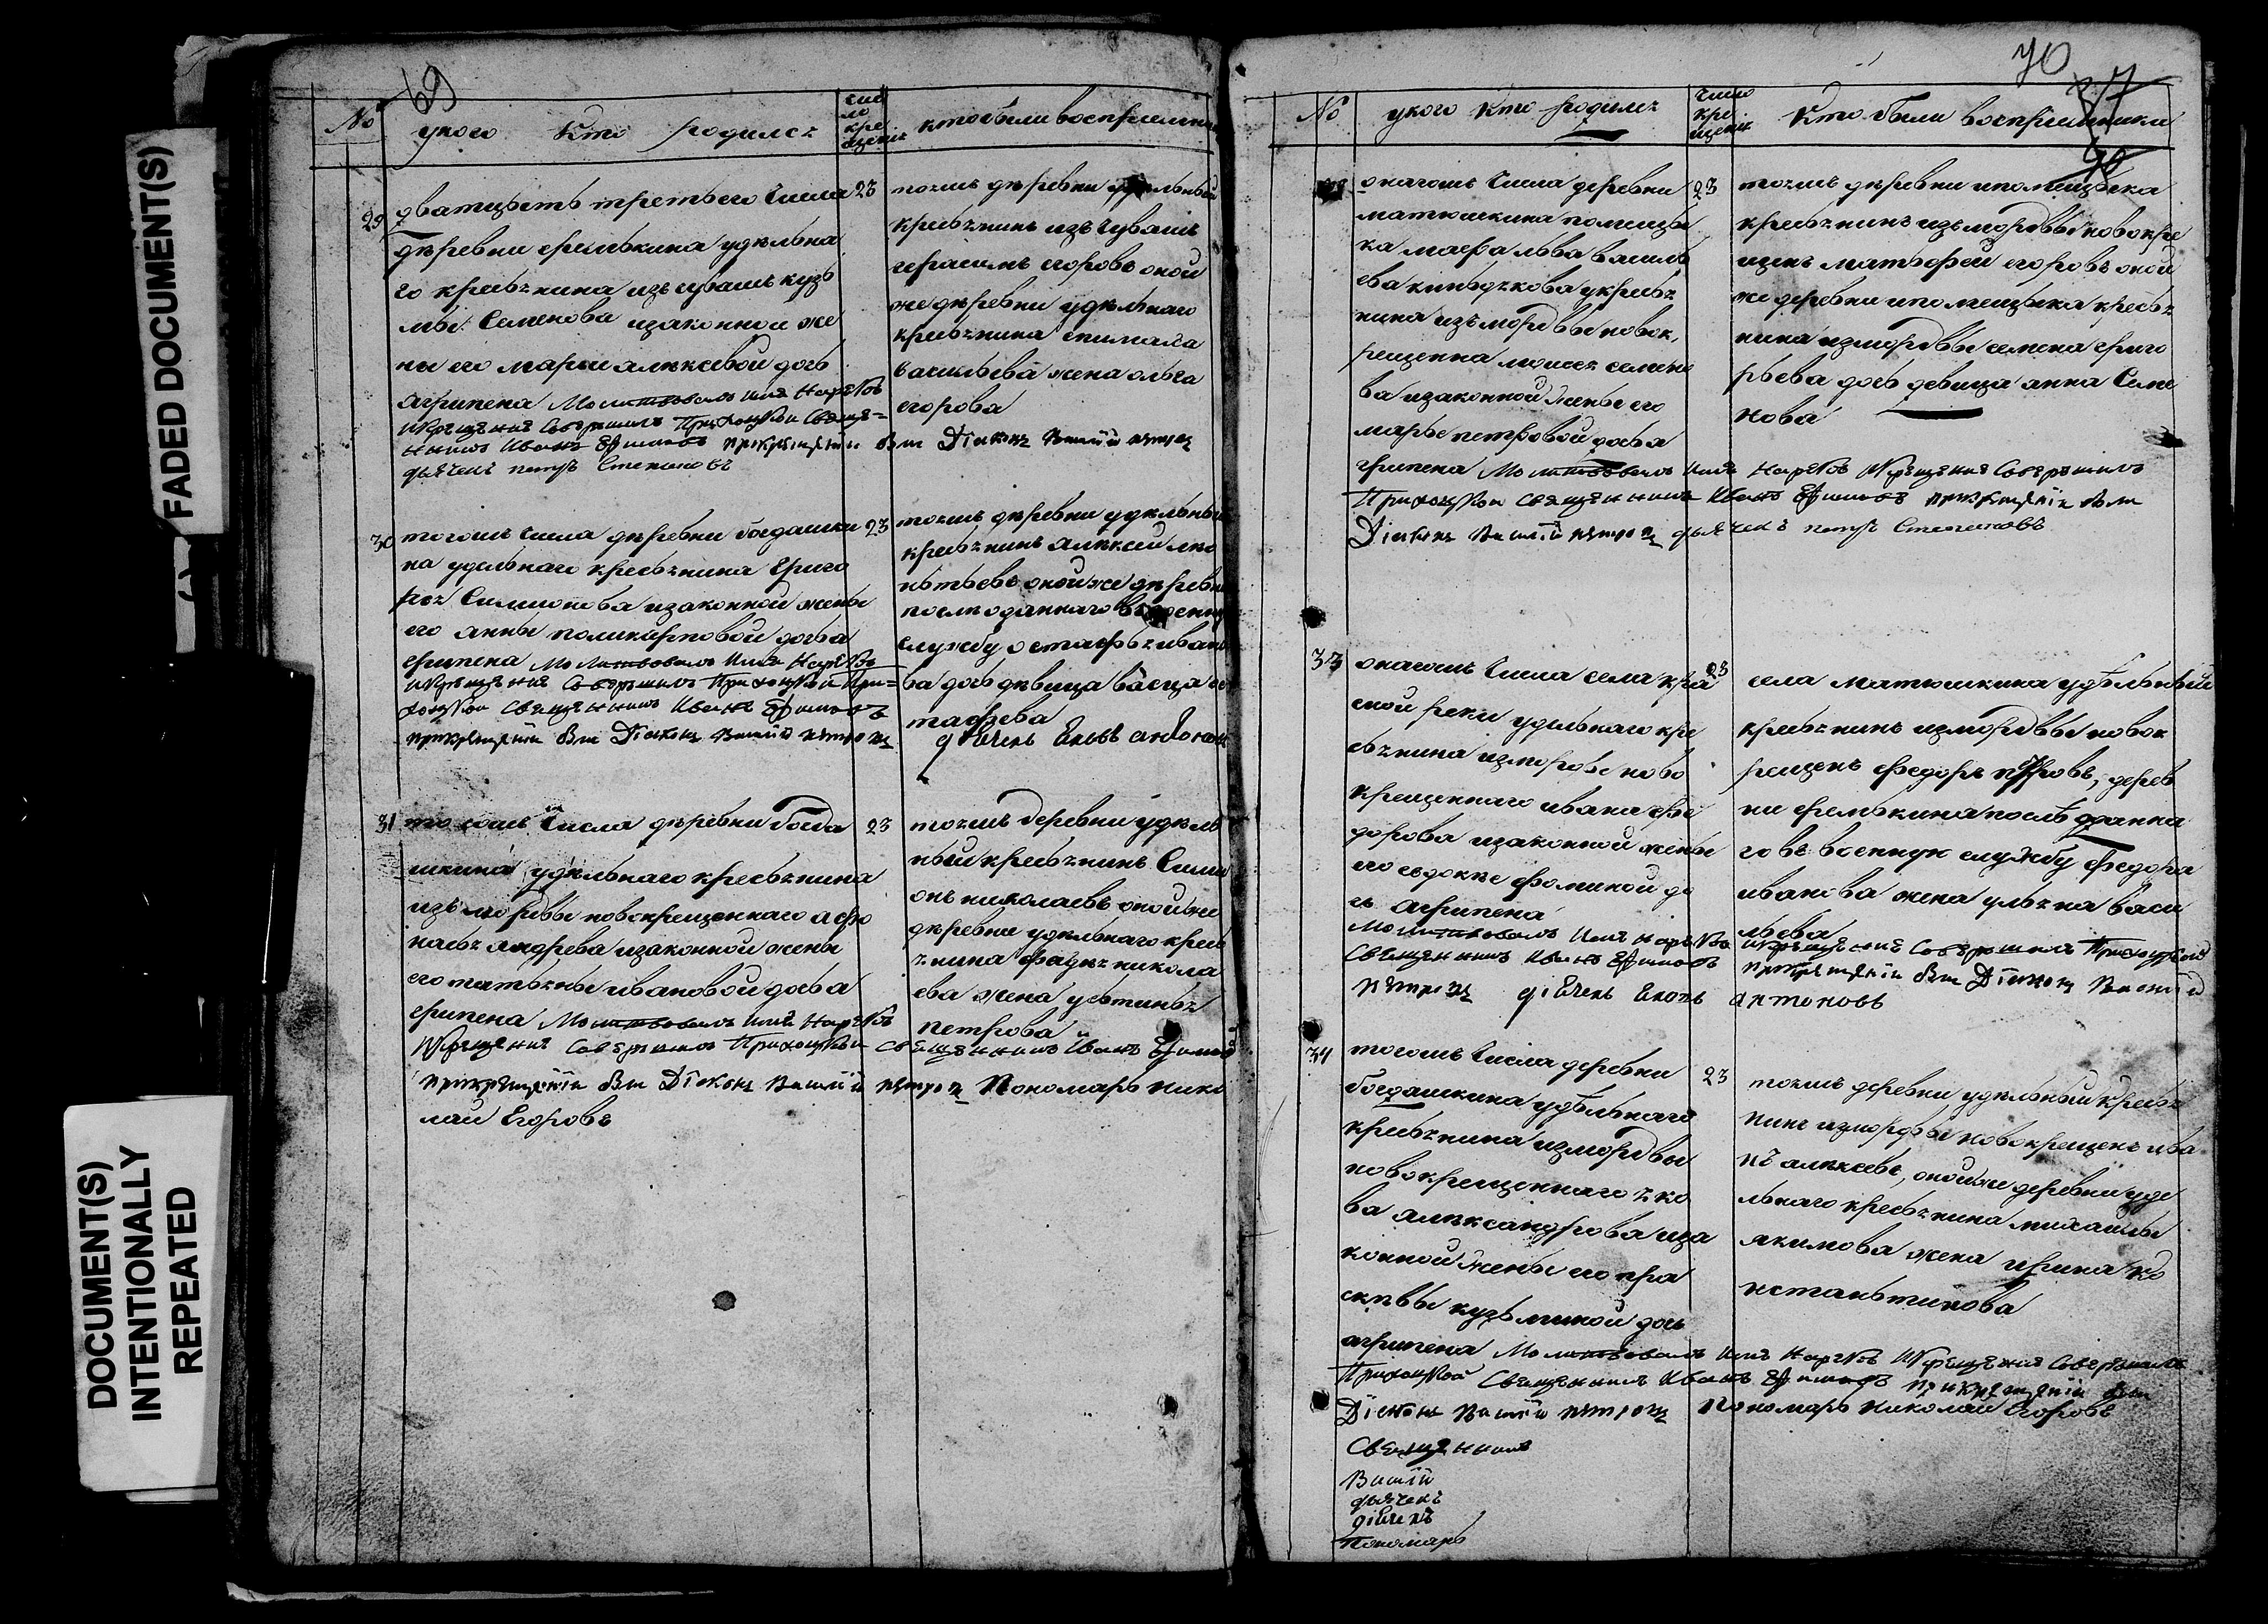 69
№
у кого Кто родился
число крещения
кто были восприемники
29
дватцеть третьего Числа
23
деревни ерилкина удельна
го кресьянина изъ чувашъ кузь
мы Семенова изаконной же
ны его марьи алексевой дочь
агрипена Молитвовалъ Имя Нарекъ
Икрещение Совершилъ Приходской Священ=
никъ Иванъ Ефимовъ прикрещении были Дiаконъ Василий петровъ
дьячекъ петръ Степановъ
тоижъ деревни удельный
кресьянинъ изъ чувашъ
герасимъ егоровъ оной
же деревни удельнаго
кресьянина
васильева жена ольга
егорова
30
тогожъ числа деревни богдашки
23
на удельнаго кресьянина Григо
рья Симионова изаконной жены
его анны поликарповой дочь а
грипена Молитвовалъ Имя Нарекъ
Икрещение Совершилъ Приходской При=
ходской Священникъ Иванъ Ефимовъ
прикрещении были Дiаконъ Василий петровъ
тоижъ деревни удельный
кресьянинъ алексей
оной же деревни
после оданнаго в военную
службу остафья ивано
ва дочь девица
тафьева
дiячекъ Яковъ антоновъ
31
тогожъ Числа деревни богда
23
шкина удельнаго кресьянина
изъ мордвы новокрещеннаго афо
насья андрева изаконной жены
его татьяны ивановой дочь а
грипена Молитвовалъ Имя Нарекъ
Икрещение Совершилъ Приходской Священникъ Иванъ Ефимовъ
прикрещении были Дiаконъ Василий петровъ Пономарь Нико
лай Егоровъ
тоижъ деревни удель
ный кресьянинъ Сими
онъ николаевъ оной же
деревни удельнаго кресь
янина фадея никола
ева жена устинья
петрова
70
№
у кого Кто родился
число крещения
Кто были восприемники
онагожъ Числа деревни
23
матюшкина помещи
ка маера льва василь
ева у кресья
нина изъ мордвы новок
рещенна моисея семено
ва изаконной жены его
марьи петровой дочь а
грипена Молитвовалъ Имя Нарекъ Икрещение Совершилъ
Приходской Священникъ Иванъ Ефимовъ прикрещении были
Дiаконъ Василий петровъ дьячекъ петръ Степановъ
тоижъ деревни ипомещика
кресьянинъ изъ мордвы новокре
щенъ матьфей егоровъ оной
же деревни ипомещика кресья
нина измордвы семена григо
рьева дочь девица анна Семе
нова
33
онагожъ Числа села кра
23
сной реки удельнаго кре
сьянина измордвы ново
крещеннаго ивана фе
дорова изаконной жены
его евдокее фоминой до
чь агрипена
Молитвовалъ Имя Нарекъ Икрещение Совершилъ Приходской
Священникъ Иванъ Ефимовъ прикрещении были Дiаконъ Василий
петровъ дiячекъ Яковъ антоновъ
села матюшкина удельный
кресьянинъ измордвы новок
рещенъ федоръ петровъ, дерев
ни ерелкина после оданна
го въ военную службу федора
иванова жена ульяна васи
льева
34
тогожъ Числа деревни
23
богдашкина удельнаго
кресьянина измордвы
новокрещеннаго яко
ва александрова иза
конной жены его пра
сковьи кузьминой дочь
агрипена Молитвовалъ Имя Нарекъ Икрещение Совершилъ
Приходской Священникъ Иванъ Ефимовъ прикрещении были
Дiаконъ Василий петровъ Пономарь Николай Егоровъ
тоижъ деревни удельный кресья
нинъ измордвы новокрещенъ ива
нъ алексевъ, оной же деревни уде
льнаго кресьянина михаилы
якимова жена ирина ко
нстаньтинова
Священникъ
Василий
дьячекъ
дiячекъ
Пономарь
FADED DOCUMENT(S)
DOCUMENT(S)
INTENTIONALLY
REPEATED